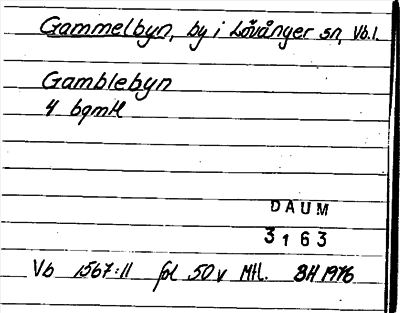 Gammelbyn, by i Lövånger sn, Vb.l.
Gamblebyn
4 bgmtl
DAUM
3163
Vb 1567:11 fol 50v Mtl. BH 1976